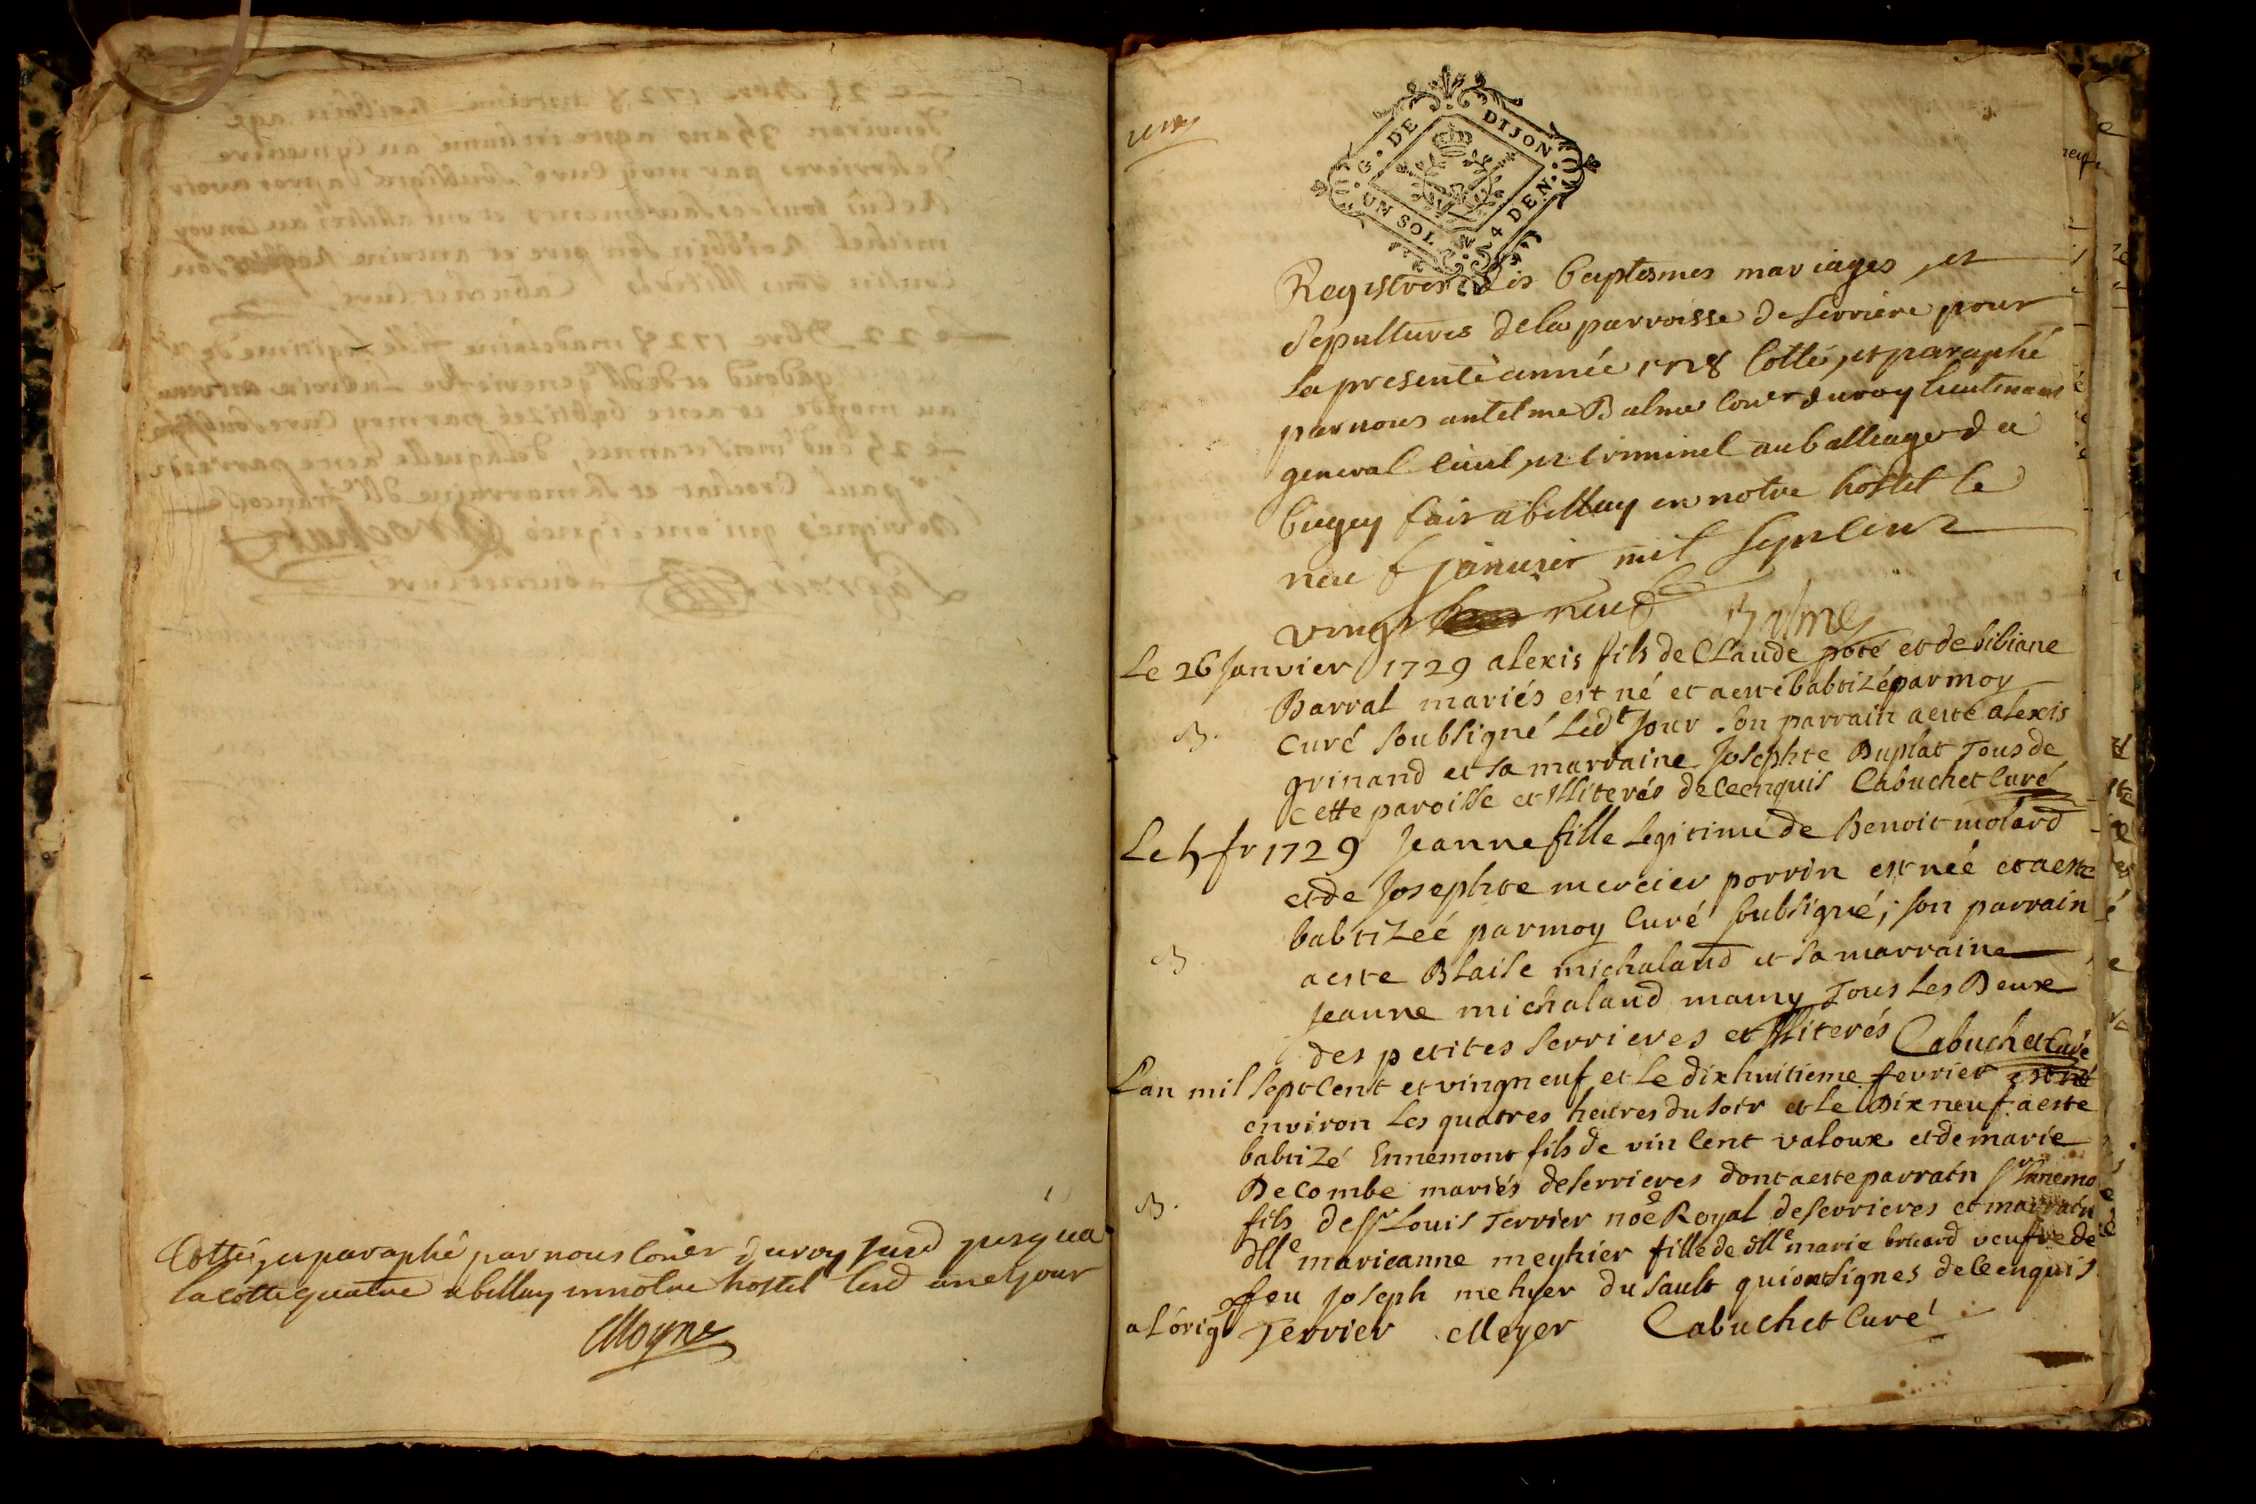 Cottés et paraphé par nous Coner du roy jusd jusqu'a
la cotte quatre a bellay en notre hostel lesd an et jour
Moyne
G. DE DIJON
UM SOL 4 DEN.
Registres des baptesmes mariages et
sepultures de la parroisse de serriere pour
la presente année 1728 Cotté et paraphé
par nous antelme Balme Coner du roy lieutenant
general Civil et Criminel au balliage de
bugey fait a bellay en notre hostel le
neuf janvier mil sept cent
vingt neuf
Balme
Le 26 Janvier 1729 alexis fils de Claude poté et de bibiane
Barral mariés est né et a esté babtizé par moy
B.
Curé soubsigné led.t Jour. Son parrain a esté alexis
grinand et sa marraine Josephte Duplat Tous de
cette paroisse et Illiterés de ce enquis Cabuchet Curé
Le 5 fr 1729 Jeanne fille Legitime de Benoit molard
et de Josephte mercier porrin est née et a este
babtizeé par moy Curé soubsigné; son parrain
B
a este Blaise michaland et sa marraine
Jeanne michaland mamy Tous Les Deux
des petites serrieres et Illiterés Cabuchet Curé
L'an mil sept cent et vingneuf et Le dixhuitieme fevrier est né
environ Les quatres heures du soir et le Dix neuf a este
babtizé Ennemont fils de vincent valoux et de marie
Decombe mariés de serrieres dont a este parrain sr Ennemo
B.
fils de sr Louis Terrier noe Royal de serrieres et marrain
dlle marieanne meyhier fille de dlle marie bricard veufve de
feu Joseph mehyer du sault qui ont signes de ce enquis
a L'órig Terrier Meyer Cabuchet Curé